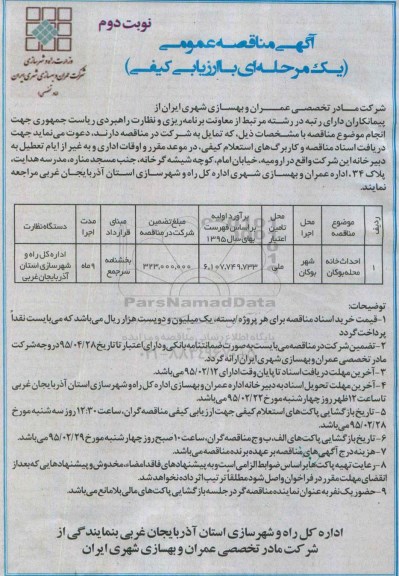 نوبت دوم
وزارت راه و شهرسازی
شرکت عمران و بهسازی شهری ایران
(مادر تخصصی)
آگهی مناقصه عمومی
(یک مرحله‌ای با ارزیابی کیفی)
شرکت مادر تخصصی عمران و بهسازی شهری ایران از
پیمانکاران دارای رتبه در رشته مرتبط از معاونت برنامه ریزی و نظارت راهبردی ریاست جمهوری جهت
انجام موضوع مناقصه با مشخصات ذیل، که تمایل به شرکت در مناقصه دارند، دعوت می‌نماید جهت
دریافت اسناد مناقصه و کاربرگ‌های استعلام کیفی، در موعد مقرر و اوقات اداری و به غیر از ایام تعطیل به
دبیرخانه این شرکت واقع در ارومیه، خیابان امام، کوچه شیشه گرخانه، جنب مسجد مناره، مدرسه هدایت،
پلاک ۳۴، اداره عمران و بهسازی شهری اداره کل راه و شهرسازی استان آذربایجان غربی مراجعه
نمایند.
ردیف موضوع مناقصه محل اجرا محل تامین اعتبار برآورد اولیه براساس فهرست بهای سال ۱۳۹۵ مبلغ تضمین شرکت در مناقصه مبنای قرارداد مدت اجرا دستگاه نظارت
۱ احداث خانه محله بوکان شهر بوکان ملی ۶,۱۰۷,۷۴۹,۷۳۳ ۳۲۳,۰۰۰,۰۰۰ بخشنامه سرجمع ۹ ماه اداره کل راه و شهرسازی استان آذربایجان غربی
ParsNamadData
توضیحات:
۱- قیمت خرید اسناد مناقصه برای هر پروژه /بسته، یک میلیون و دویست هزار ریال می‌باشد که می‌بایست نقداً
پرداخت گردد
۲- تضمین شرکت در مناقصه می‌بایست به صورت ضمانتنامه بانکی و دارای اعتبار تا تاریخ ۹۵/۰۴/۲۸ در وجه شرکت
مادر تخصصی عمران و بهسازی شهری ایران ارائه گردد
۳- آخرین مهلت دریافت اسناد تا پایان وقت اداری ۹۵/۰۲/۱۲ می‌باشد.
۴- آخرین مهلت تحویل اسناد به دبیرخانه اداره عمران و بهسازی اداره کل راه و شهرسازی استان آذربایجان غربی
تا ساعت ۱۲ ظهر روز چهارشنبه مورخ ۹۵/۰۲/۲۲ می‌باشد.
۵- تاریخ بازگشایی پاکت‌های استعلام کیفی جهت ارزیابی کیفی مناقصه گران، ساعت ۱۲:۳۰ روز سه شنبه مورخ
۹۵/۰۲/۲۸ می‌باشد.
۶- تاریخ بازگشایی پاکت‌های الف، ب و ج مناقصه گران، ساعت ۱۰ صبح روز چهارشنبه مورخ ۹۵/۰۲/۲۹ می‌باشد.
۷- هزینه درج آگهی‌های مناقصه بر عهده برنده مناقصه می‌باشد.
۸- رعایت تهیه پاکت‌ها بر اساس ضوابط الزامی است و به پیشنهادهای فاقد امضاء، مخدوش و پیشنهادهایی که بعد از
انقضای مهلت مقرر در فراخوان واصل شود مطلقاً ترتیب اثر داده نخواهد شد.
۹- حضور یک نفر به عنوان نماینده مناقصه گر در جلسه بازگشایی پاکت‌های مالی بلامانع می‌باشد.
اداره کل راه و شهرسازی استان آذربایجان غربی بنمایندگی از
شرکت مادر تخصصی عمران و بهسازی شهری ایران